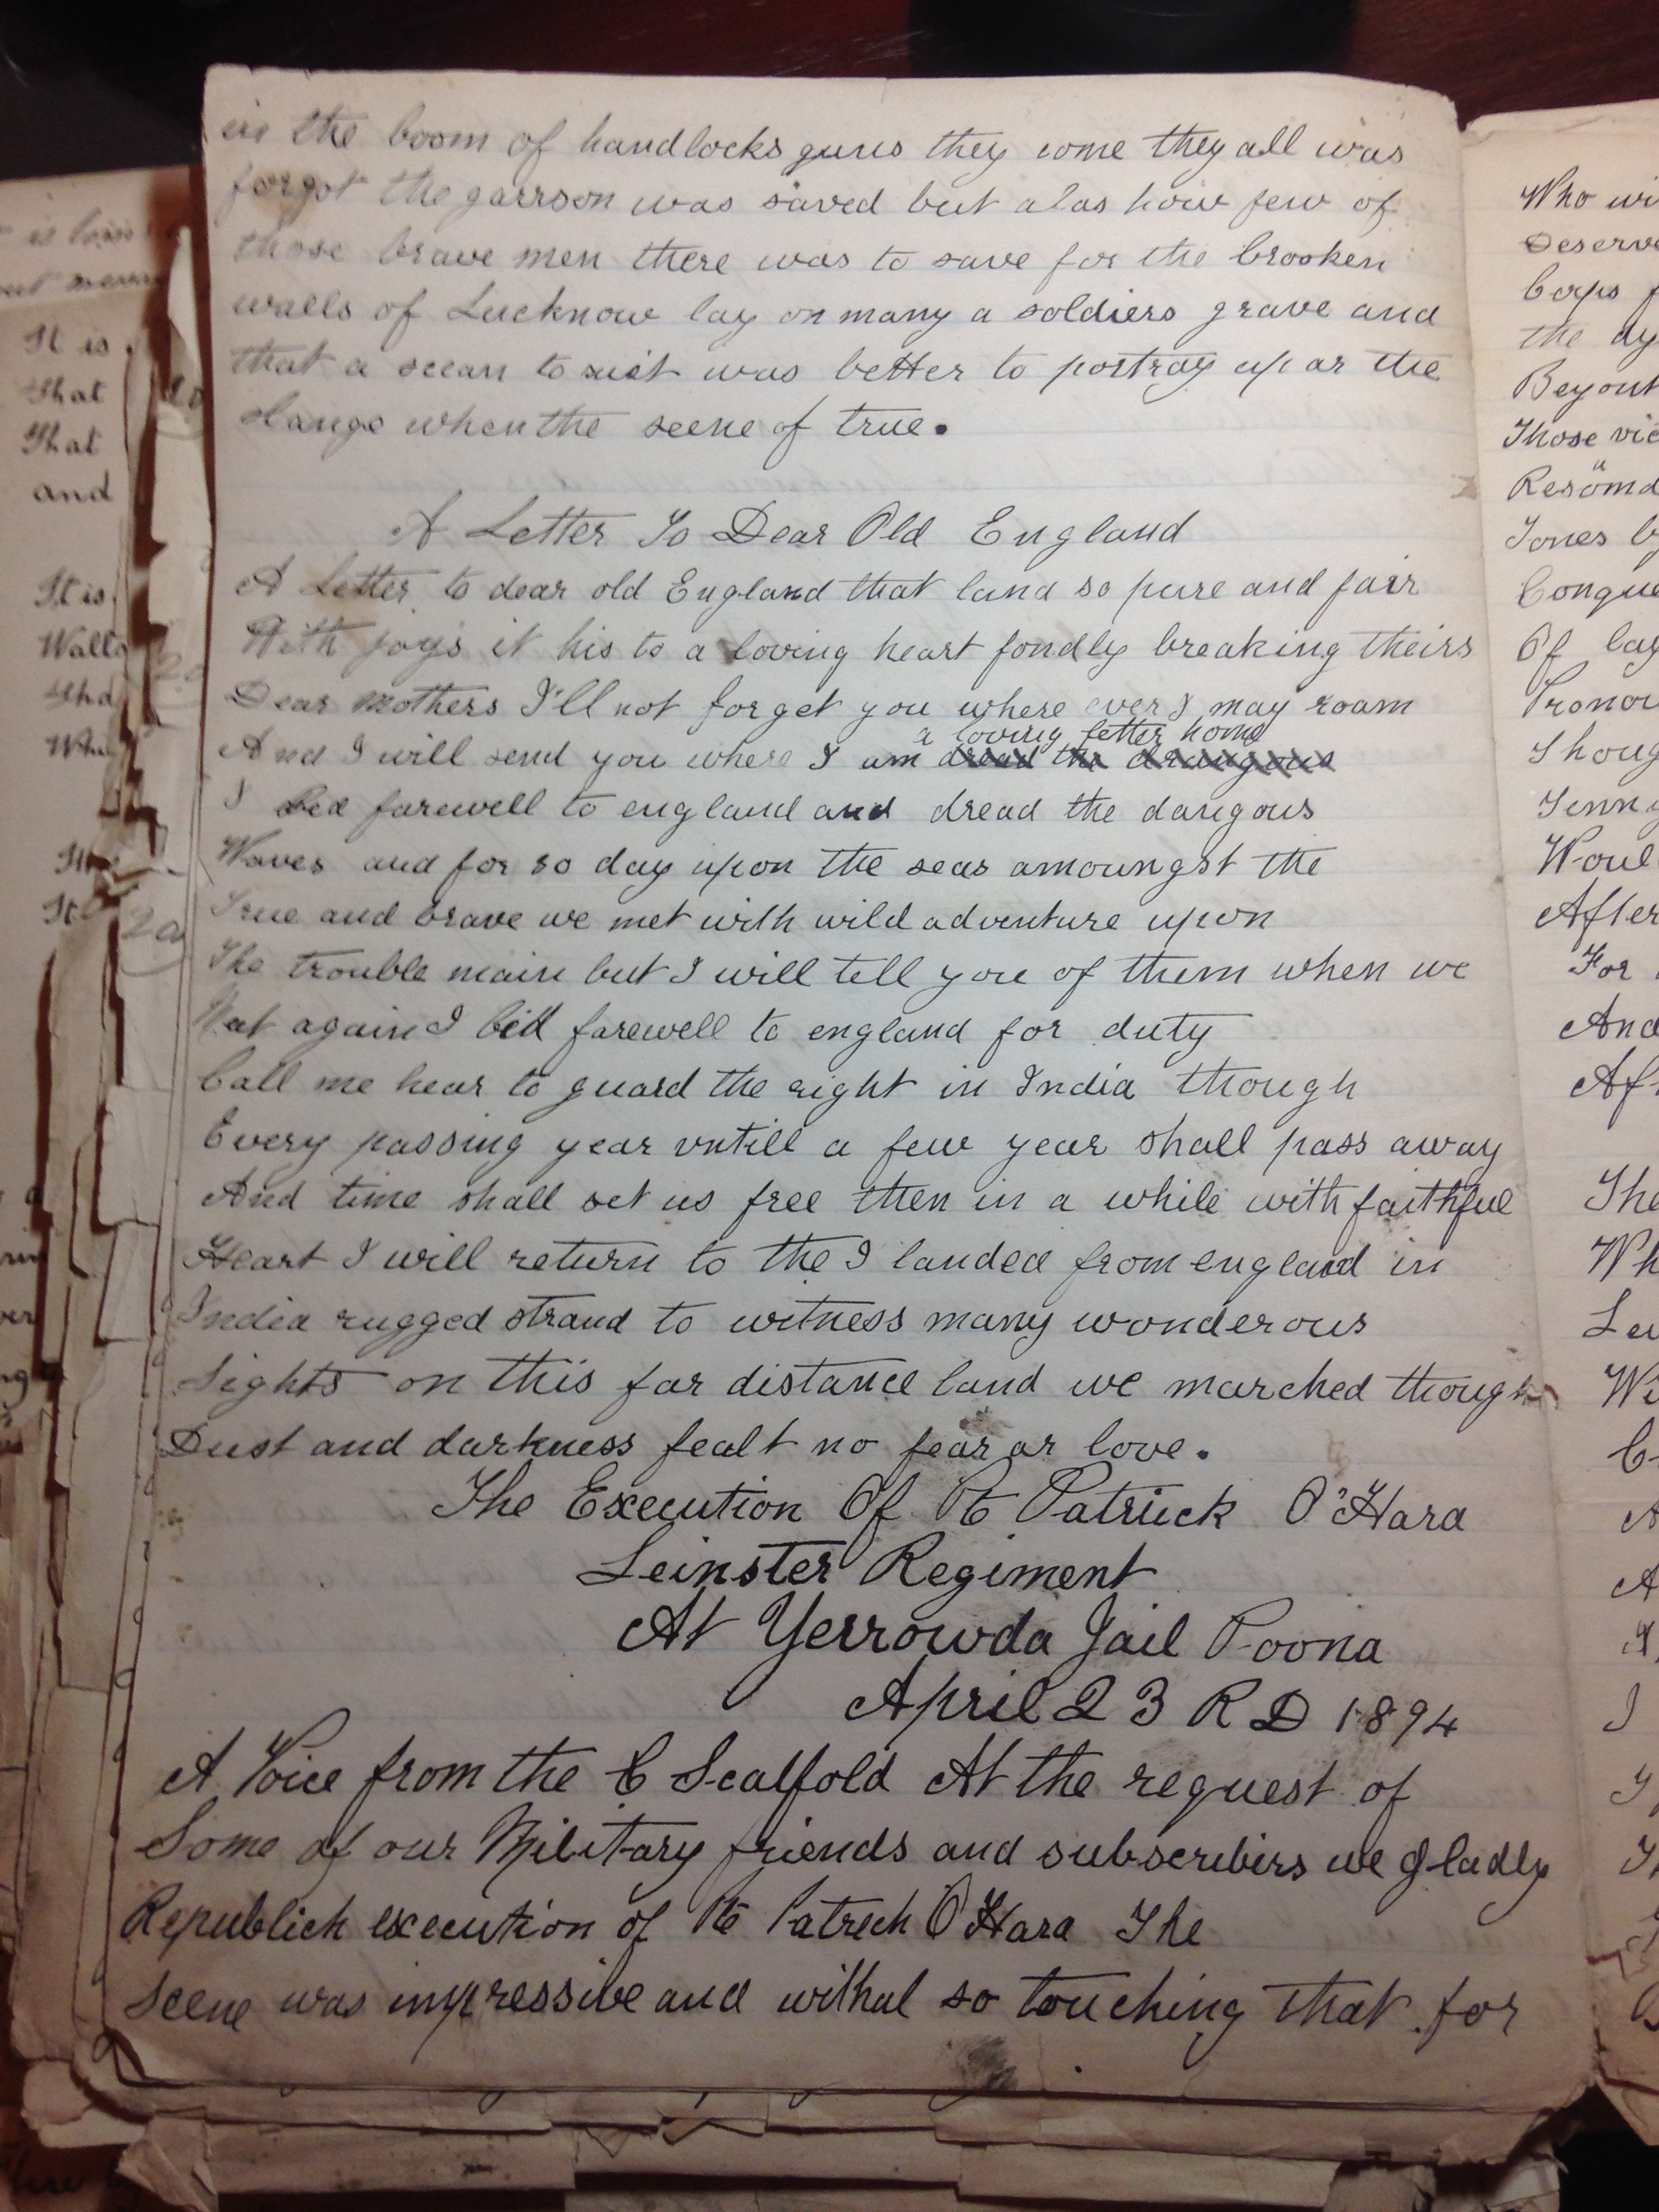 in the boom of handlocks guns they come they all was
forgot the garrson was saved but alas how few of
those brave men there was to save for the brooken
walls of Lucknow lay on many a soldiers grave and
that a was better to postray up ar the
when the scene of true.
A Letter To Dear Old England
A Letter to dear old England that land so pure and fair
With joys it his to a loving heart fondly breaking theirs
Dear Mothers I'll not forget you where ever I may roam
a loving letter home
And I will send you where I am dread the drangous
I Bed farewell to england and dread the dangous
Waves and for 30 day upon the seas amoungst the
True and brave we met with wild adventure upon
The trouble main but I will tell you of them when we
again I bid farewell to england for duty
Call me hear to guard the right in India though
Every passing year untill a few year shall pass away
And time shall set us free then in a while with faithful
Heart I will return to the I landed from england in
India rugged strand to witness many wonderous
Sights on this far distance land we marched though
Dust and darkness fealt no fear or love.
The Execution Of Pte Patrick O'Hara
Leinster Regiment
At Yerrowda Jail Poona
April 23 RD 1894
A Voice from the C Scalfold At the request of
Some of our Military friends and subscribers we gladly
Republich execution of Pte Patrech O'Hara The
Scene was impressive and withal so touching that for
It is
That
That
and
It is
Who
Deserve
Corps
the
Beyont
Those
Tones
Of
Thoug
After
For
And
The